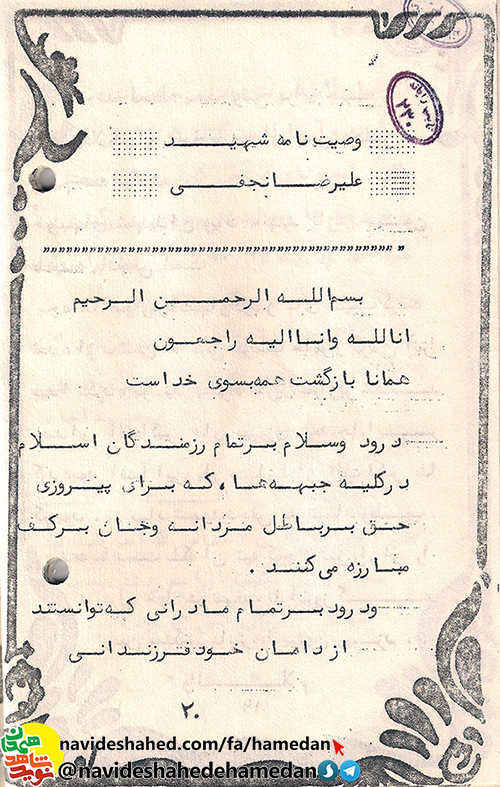 وصیت نامه شهید
علیرضا نجفی
بسم الله الرحمن الرحیم
انا لله وانا الیه راجعون
همانا بازگشت همه بسوی خداست
درود وسلام برتمام رزمندگان اسلام
درکلیه جبهه‌ها، که برای پیروزی
حق برباطل مردانه وجان برکف
مبارزه می‌کنند.
ودرود برتمام مادرانی که توانستند
از دامان خود فرزندانی
۲۰
navideshahed.com/fa/hamedan
@navideshahedehamedan